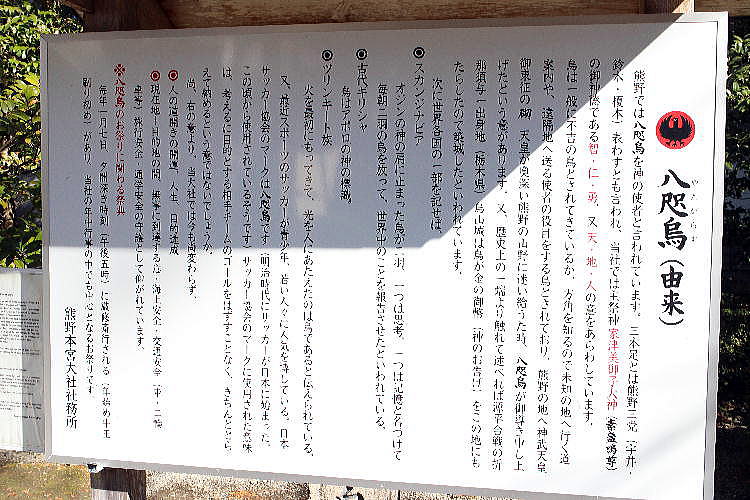 八咫烏(由来)
やたがらす
熊野では八咫烏を神の使者と言われています。三本足とは熊野三党(宇井・
鈴木・榎本)を表わすとも言われ、当社では主祭神家津美御子大神(素盞鳴尊)
の御神徳である智・仁・勇、又天・地・人の意をあらわしています。
烏は一般に不吉の鳥とされてきているが、方角を知るので未知の地へ行く道
案内や、遠隔地へ送る使者の役目をする鳥とされており、熊野の地へ神武天皇
御東征の砌、天皇が奥深い熊野の山野に迷い給うた時、八咫烏が御導き申し上
げたという意があります。又、歴史上の一端より触れて述べれば源平合戦の折
那須与一出身地(栃木県)烏山城は烏が金の御幣(神のお告げ)をこの地にも
たらしたので築城したといわれています。
次に世界各国の一部を記せば、
◎スカンジナビア
オシンの神の肩に止まった烏が二羽、一つは思考、一つは記憶と名づけて
毎朝二羽の烏を放って、世界中のことを報告させたといわれている。
◎古代ギリシャ
烏はアポロの神の標識。
◎ツリンキート族
火を最初にもってきて、光を人にあたえたのは烏であると伝えられている。
又、最近スポーツのサッカーが青少年、若い人々に人気を博している。日本
サッカー協会のマークは八咫烏です(明治時代にサッカーが日本に始まった。
この頃から使用されているそうです)サッカー協会のマークに使用された意味
は、考えるに目的とする相手チームのゴールをはずすことなく、きちんととら
えて納めるという意ではないでしょうか。
尚、右の意より、当大社では今も尚変わらず。
◎人の道開きの開運、人生、目的達成
◎現在地と目的地の間、無事に到達する意、海上安全・交通安全(車・二輪
車等)旅行安全・通学安全の守護としてが仰がれています。
※八咫烏のお祭りに関わる祭典
毎年一月七日 夕闇深き時刻(午後五時)に厳修斎行される(年始め牛王
刷り初め)があり、当社の年中行事の中でも中心となるお祭りです。
熊野本宮大社社務所